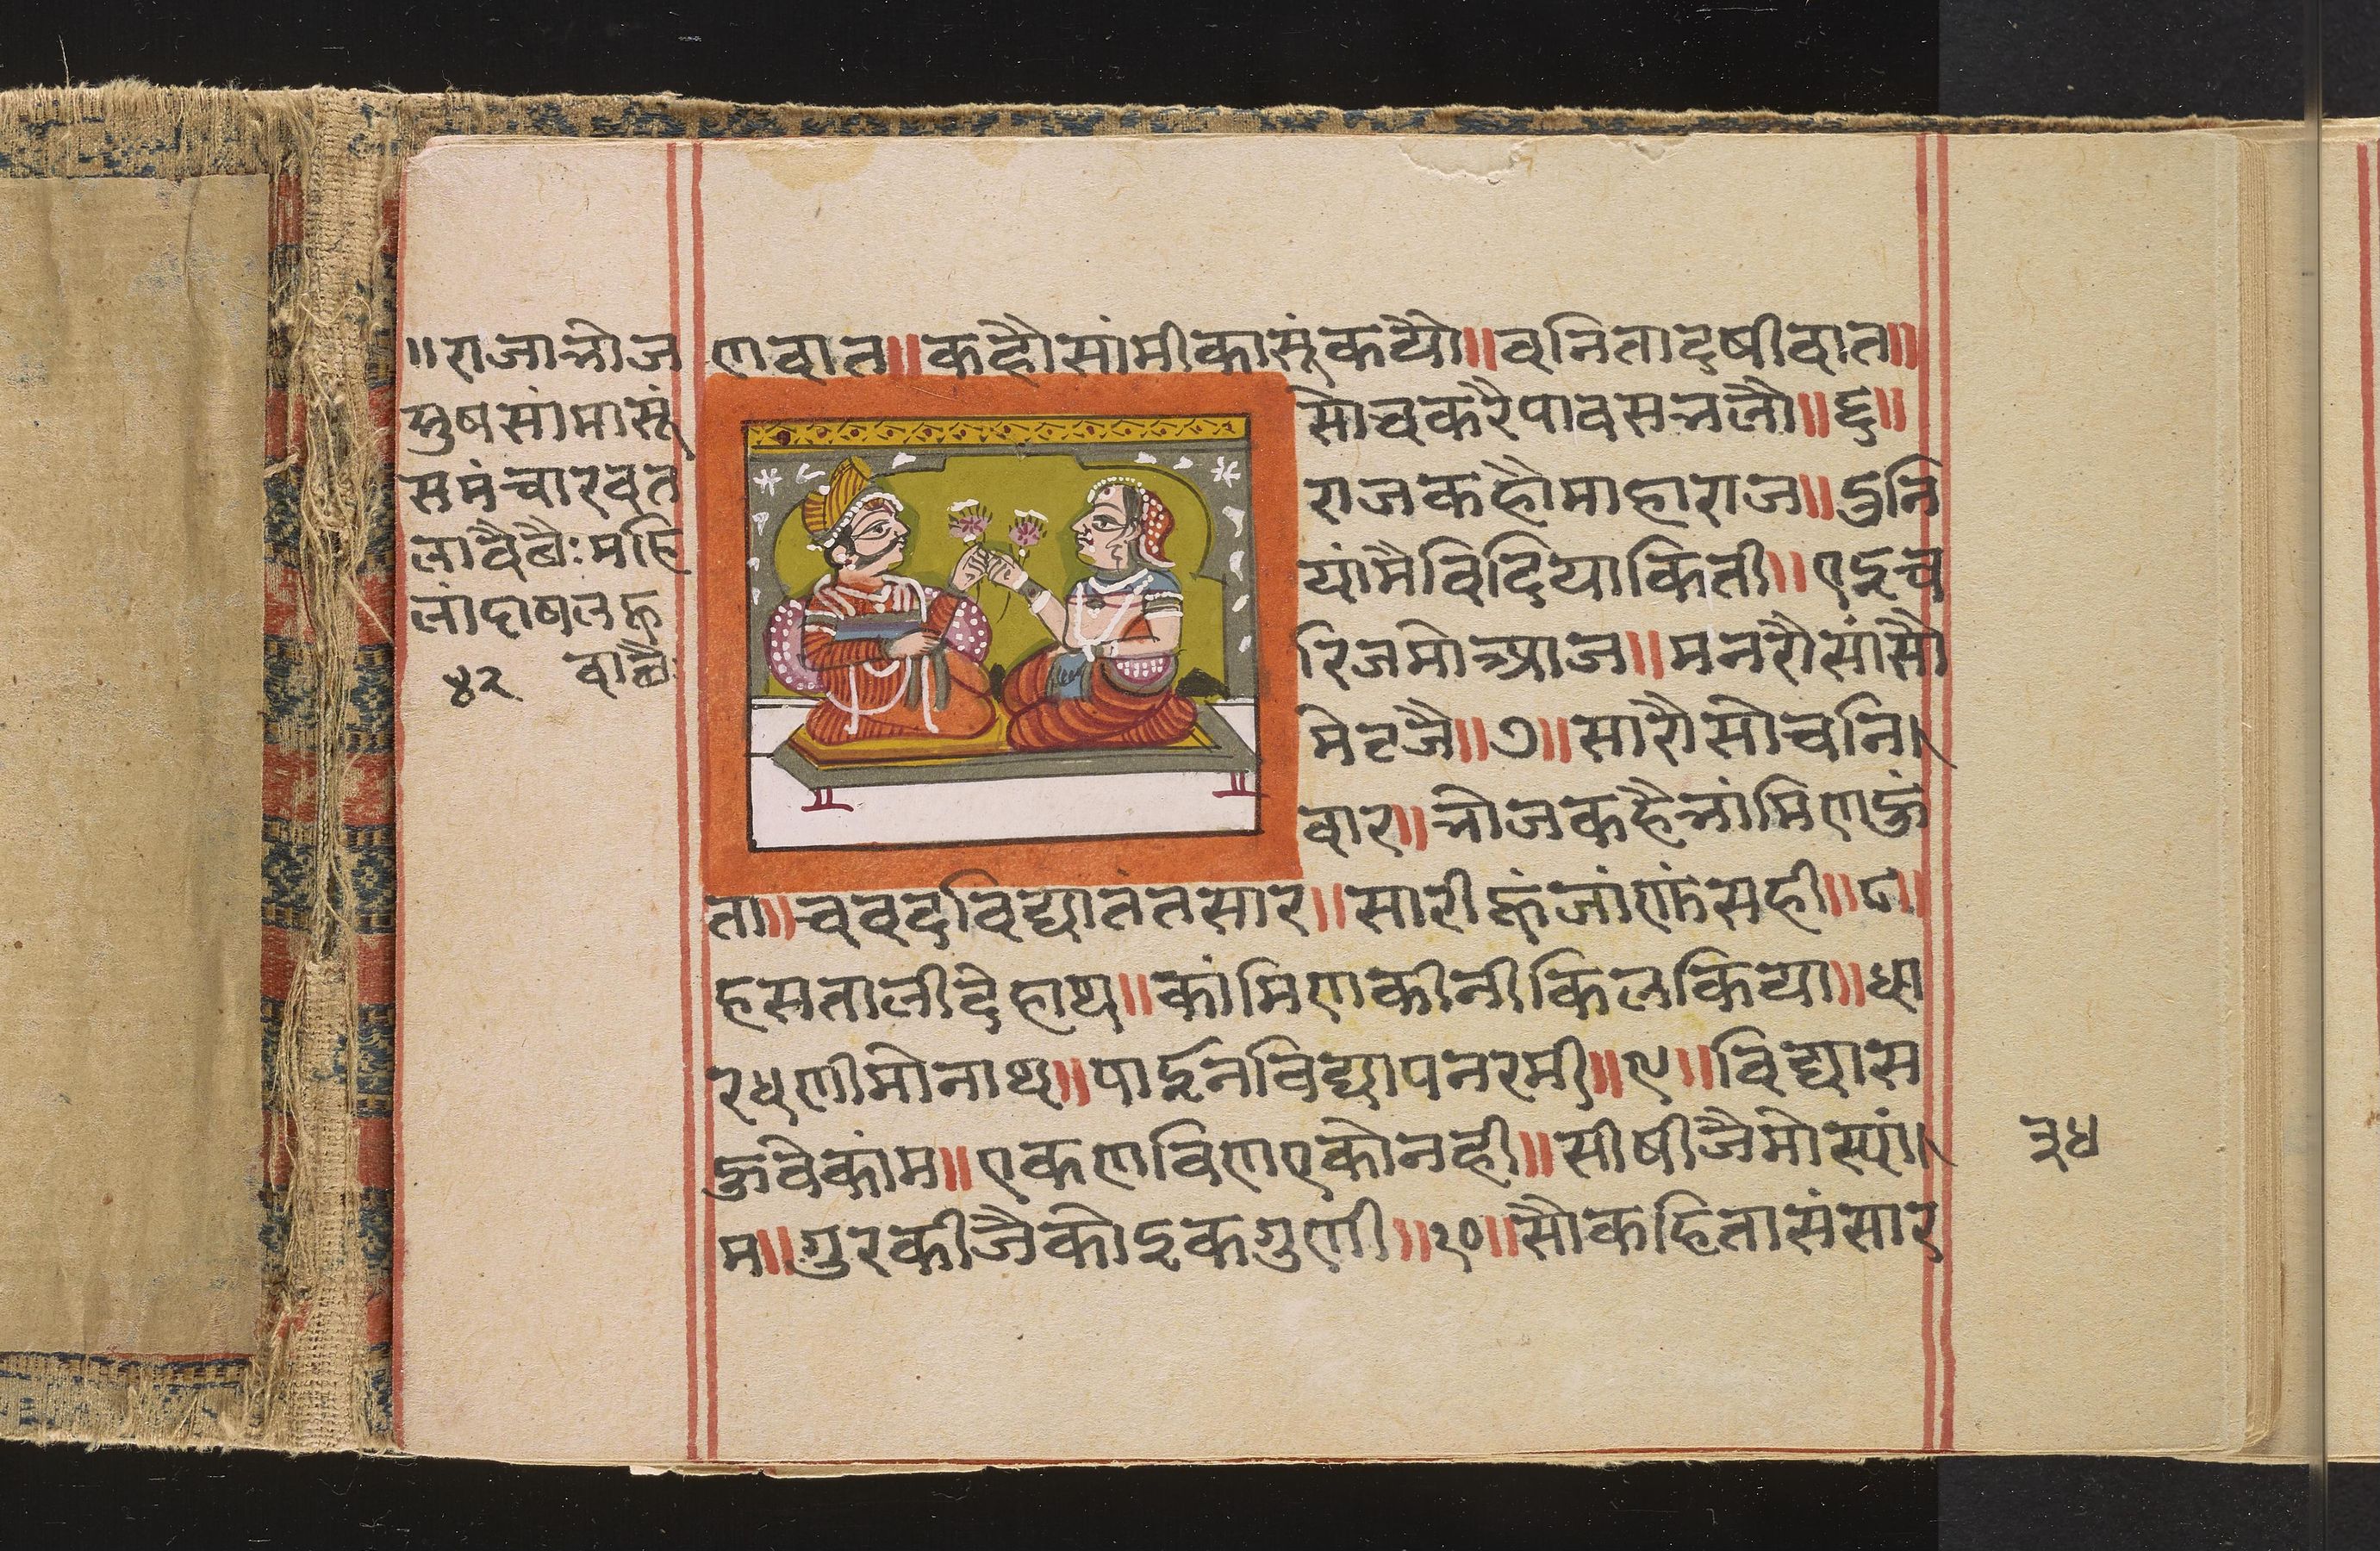 ॥राजाभोज
मुषसांमासूं
समंचारवत
लावैछैःमहि
लांदाषलरू
४२ वाछैः
णवात॥कहौसांमीकासूंकयौ॥वनितादषीवात॥
सोचकरैपावसभलौ॥६॥
राजकहौमाहाराज॥दुनि
यांमैविदियाकिती॥एइच
रिजमोआज॥मनरौसांसौ
मेटजै॥७॥सारौसोचनि
वार॥भोजकहैभांमिणहुं
ता॥चवदविद्यातंतसार॥सारीहुंजांणुंसही॥८॥
हसतालीदेहाथ॥कांमिणकीनीकिलकिया॥धा
रधणीमोनाथ॥पाईनविद्यापनरमी॥९॥विद्यास
हुवेकांम॥एकणविणएकोनही॥सीषीजैमोस्यां
म॥गुरकीजैकोइकगुणी॥१०॥सौकहितासंसार
३४